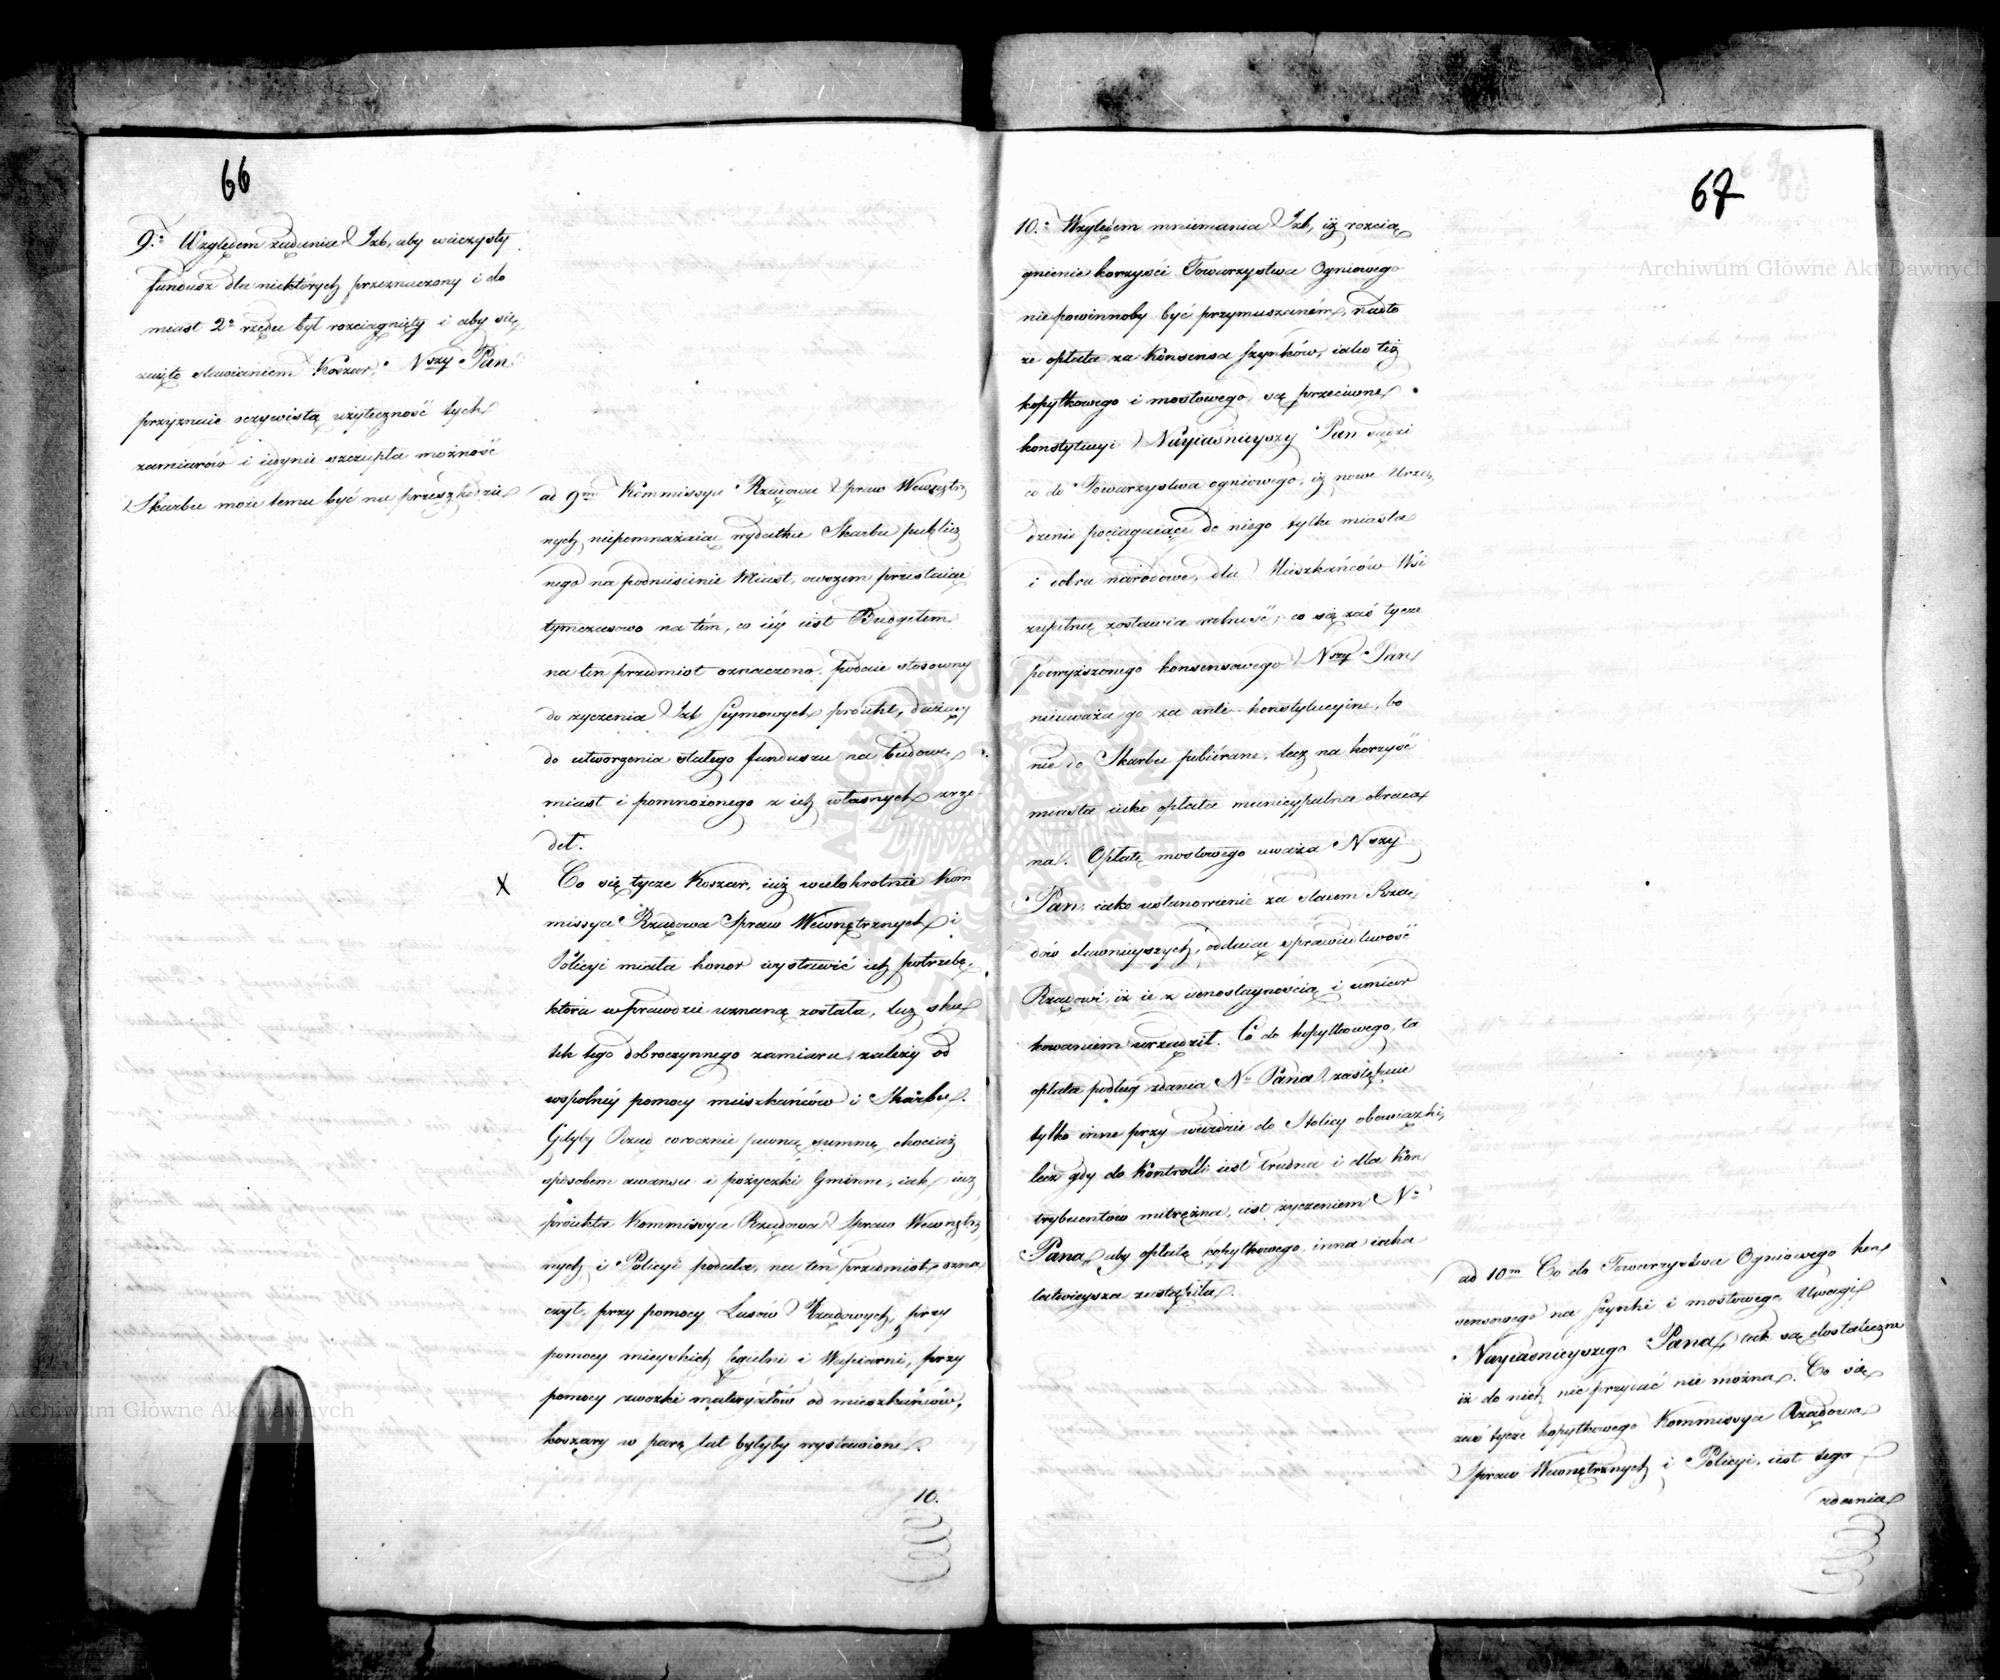 66
9.° Względem żądania Izb, aby wieczysty
fundusz dla niektórych przeznaczony i do
miast 2° rzędu był rozciągnięty i aby się
zaięto stawianiem Koszar, Nszy Pan
przyznaie oczywistą użyteczność tych
zamiarów i iedynie szczupła możność
Skarbu może temu być na przeszkodzie
ad 9m Kommissya Rządowa Spraw Wewnętrz
nych niepomnażaiąc wydatku Skarbu publicz
nego na podniesienie Miast, owszem przestaiąc
tymczasowo na tém, co iéy iest Budgetem
na ten przedmiot oznaczono, podaie stosowny
do życzenia Izb Seymowych proiekt, dążący
do utworzenia stałego funduszu na budowę
miast i pomnożonego z ich własnych źrze-
deł.
X Co się tycze Koszar, iuż wielokrotnie Kom
missya Rządowa Spraw Wewnętrznych i
Policyi miała honor wystawić ich potrzebę,
która wprawdzie uznaną została, lecz sku
tek tego dobroczynnego zamiaru, zależy od
wspolnéy pomocy mieszkańców i Skarbu.
Gdyby Rząd corocznie pewną summę, chociaż
sposobem awansu i pożyczki Gminne, iak iuż
proiekta Kommissya Rządowa Spraw Wewnętrz
nych i Policyi podała, na ten przedmiot ozna
czył, przy pomocy Lasów Rządowych, przy
pomocy mieyskich Cegielni i Wapiarni, przy
pomocy zwozki materyałów od mieszkańców,
koszary w parę lat byłyby wystawione.
10.
67
10.° Względem mniemania Izb, iż rozcią
gnienie korzyści Towarzystwa Ogniowego
nie powinnoby być przymuszaném, nadto
że opłata za Konsensa szynków, iako też
kopytkowego i mostowego, są przeciwne
konstytucyi Nayiaśnieyszy Pan sądzi
co do Towarzystwa ogniowego, iż nowe Urzą
dzenie pociągaiące do niego tylko miasta
i dobra narodowe, dla Mieszkańców Wsi
zupełną zostawia wolność; co się zaś tycze
powyższonego konsensowego Nszy Pan
nieuważa go za anti-konstytucyine, bo
nie do Skarbu pobiérane, lecz na korzyść
miasta iako opłata municypalna obraca
na. Opłatę mostowego uważa Nszy
Pan, iako ustanowienie za staiem Rzą
dów dawnieyszych, oddaiąc sprawiedliwość
Rządowi, iż ie z iednostaynością i umiar
kowaniem urządził. Co do kopytkowego, ta
opłata podług zdania No Pana, zastępuie
tylko inne przy wieździe do Stolicy obowiązki,
lecz gdy do Kontrolli iest trudna i dla Kon
trybuentów mitrężna, iest życzeniem No
Pana, aby opłatę kopytkowego, inna iaka
łatwieysza zastąpiła.
ad 10m Co do Towarzystwa Ogniowego kon
sensowego na Szynki i mostowego Uwagi
Nayiaśnieyszego Pana, tak są dostateczne
iż do nich nic przydać nie można. Co się
zaś tycze kopytkowego Kommissya Rządowa
Spraw Wewnętrznych i Policyi, iest tego
zdania
Archiwum Główne Akt Dawnych
Archiwum Główne Akt Dawnych